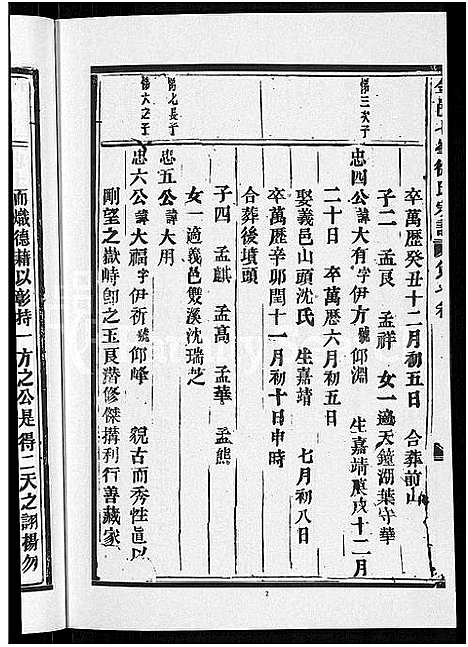 卒萬歷癸丑十二月初五日 合葬前山
子二 孟良 孟祥 女一適天鏡湖葉守華
儒三次子
忠四公諱大有字伊方號仰淵 生嘉靖庚戌十二月
二十日 卒萬歷六月初五日
娶義邑山頭沈氏 生嘉靖 七月初八日
卒萬歷辛卯閏十一月初十日申時
合葬後墳頭
子四 孟麒 孟高 孟華 孟熊
女一適義邑雙溪沈瑞芝
儒七長子
忠五公諱大用
儒六之子
忠六公諱大福字伊祈號仰峰 貌古而秀性真以
剛望之嶽峙卽之玉良潜修傑搆利行善藏家
而熾德藉以彰持一方之公是得二天之詡揚勿
2